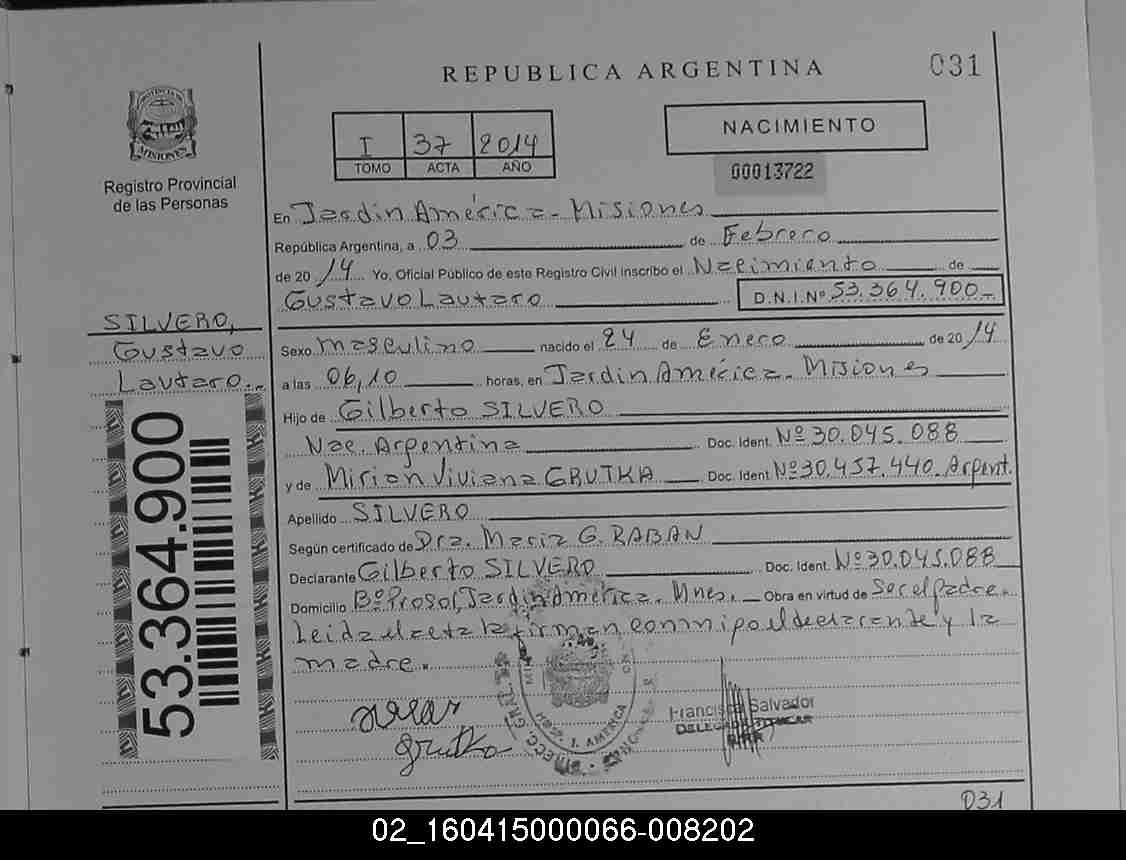 REPUBLICA ARGENTINA
031
PROVINCIA DE
MISIONES
Registro Provincial
de las Personas
I 37 2014
TOMO ACTA AÑO
NACIMIENTO
00013722
En Jardin América - Misiones
República Argentina, a 03 de Febrero
de 20 14 Yo, Oficial Público de este Registro Civil inscribo el Nacimiento de
Gustavo Lautaro D.N.I.Nº 53.364.900
SILVERO,
Gustavo
Lautaro..
53.364.900
Sexo masculino nacido el 24 de Enero de 20 14
a las 06,10 horas, en Jardin América - Misiones
Hijo de Gilberto SILVERO
Nac. Argentina Doc. Ident. Nº 30.045.088
y de Mirian Viviana GRUTKA Doc. Ident. Nº 30.457.440. Argent.
Apellido SILVERO
Según certificado de Dra. Maria G. RABAN
Declarante Gilberto SILVERO Doc. Ident. Nº 30.045.088
Domicilio Bº Prosol, Jardin América. Mnes. Obra en virtud de Ser el Padre.
Leida el acta la firman conmigo el declarante y la
madre.
Grutka
J. AMERICA
Salvador
031
02_160415000066-008202